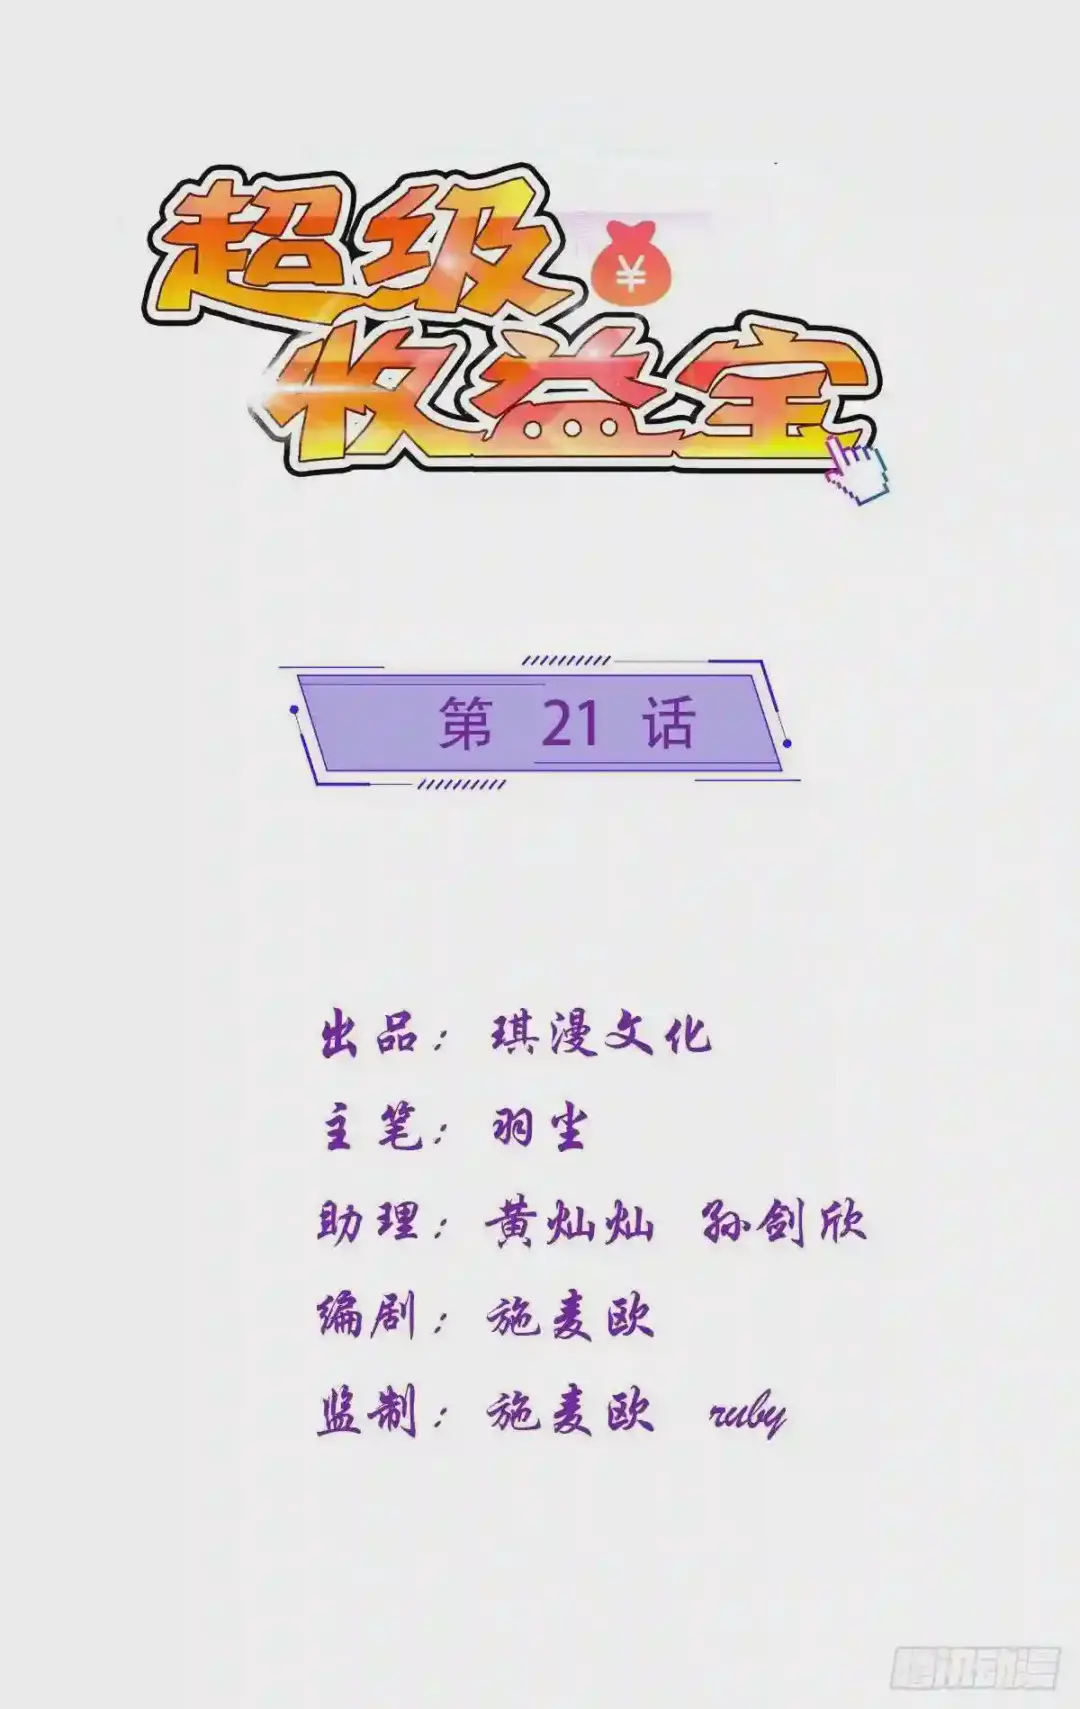 超级
¥
收益宝
第 21 话
出品：琪漫文化
主笔：羽尘
助理：黄灿灿 孙剑欣
编剧：施麦欧
监制：施麦欧 ruby